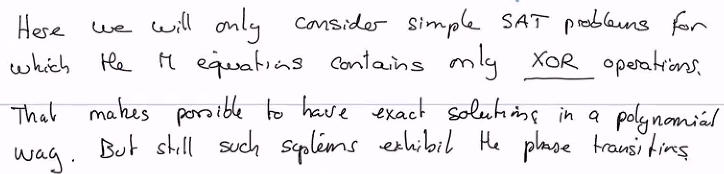 Here we will only consider simple SAT problems for
which the M equations contains only XOR operations.
That makes possible to have exact solutions in a polynomial
way. But still such systems exhibit the phase transitions